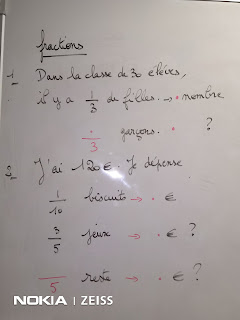 fractions
1_ Dans la classe de 30 élèves,
il y a 1/3 de filles. → . nombre
./3 garçons. . ?
2_ J'ai 120 €. Je dépense
1/10 biscuits → . €
3/5 jeux → . € ?
/5 reste → . € ?
NOKIA | ZEISS